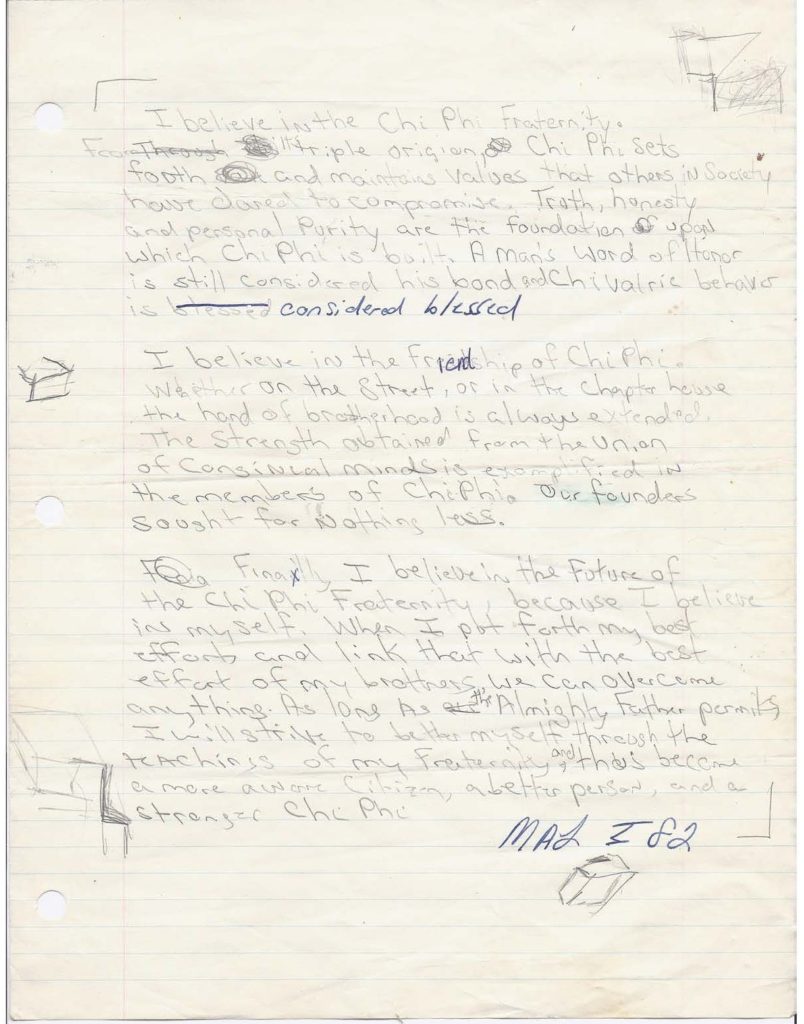 I believe in the Chi Phi Fraternity.
From Through its triple origion, Chi Phi sets
fouth and maintains values that others in Society
have dared to compromise. Truth, honesty
and personal Purity are the foundation of upon
which Chi Phi is built. A man's word of Honor
is still considered his bond and Chivalric behavier
is blessed considered blessed
I believe in the Friendship of Chi Phi.
Whether on the Street, or in the Chapter house
the hand of brotherhood is always extended.
The Strength obtained from the union
of Congineal minds is exemplified in
the members of Chi Phi. Our founders
sought for Nothing less.
Finally I believe in the Future of
the Chi Phi Fraternity, because I believe
in myself. When I put forth my best
efforts and link that with the best
effort of my brothers, we can overcome
anything. As long as the Almighty Father permits,
I will strive to better myself through the
teachings of my Fraternity, and thus become
a more aware Citizen, a better person, and a
stronger Chi Phi
MAL I 82